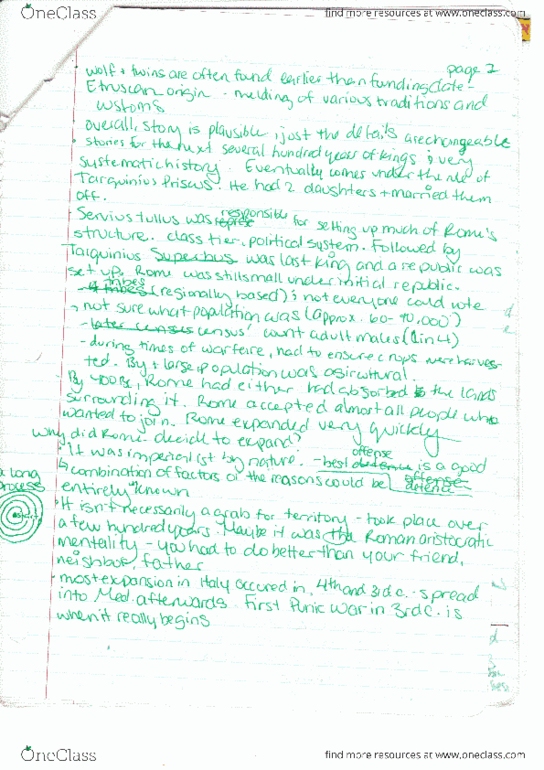 OneClass
find more resources at www.oneclass.com
page 2
wolf + twins are often found earlier than funding date -
Etruscan origin - melding of various traditions and
customs
overall, story is plausible, just the details are changeable
stories for the next several hundred years of kings is very
systematic history. Eventually comes under the rule of
Tarquinius Priscus. He had 2 daughters + married them
off.
Servius tullus was responsible for setting up much of Rome's
structure. class tier, political system. Followed by
Tarquinius Superbus was last king and a republic was
set up. Rome was still small under initial republic.
tribes (regionally based) ; not everyone could vote
not sure what population was (approx. 60-90,000)
- later census census' count adult males (1 in 4)
- during times of warfare, had to ensure crops were harves-
ted. By + large population was agricultural.
By 400BC, Rome had either had absorbed the lands
surrounding it. Rome accepted almost all people who
wanted to join. Rome expanded very quickly
why did Rome decide to expand?
offense
It was imperialist by nature. - best defence is a good
combination of factors of the reasons could be offense defence
entirely unknown
a long
process
It isn't necessarily a grab for territory - took place over
a few hundred years. Maybe it was the Roman aristocratic
mentality - you had to do better than your friend,
neighbor, father
most expansion in Italy occured in 4th and 3rd c. - spread
into Med. afterwards. First Punic War in 3rd c. is
when it really begins
OneClass
find more resources at www.oneclass.com